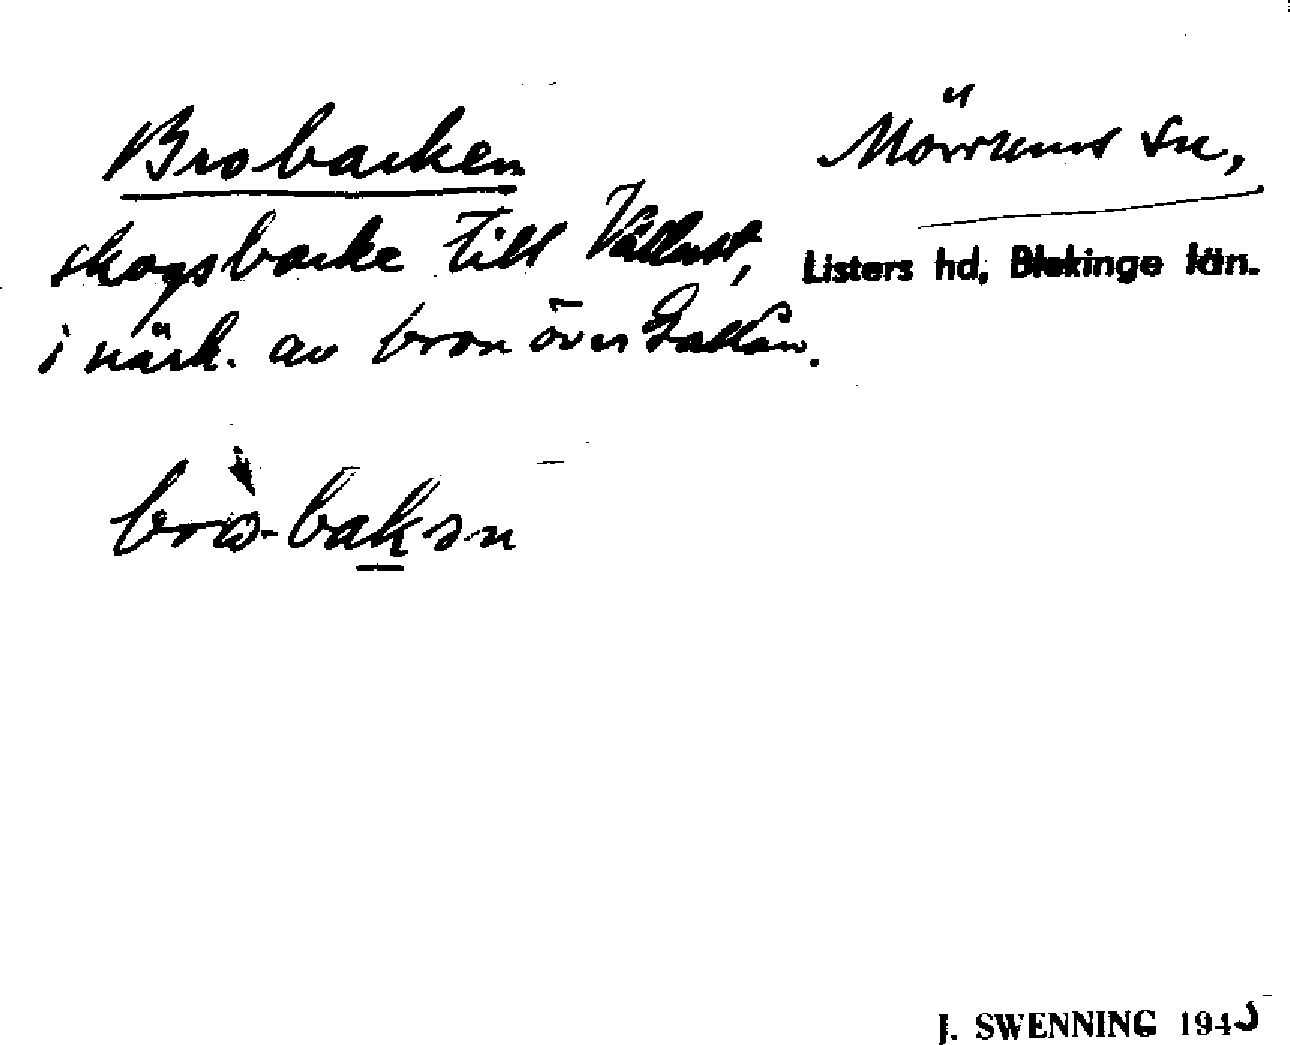 Brobacken
Mörrums sn,
skogsbacke till
Listers hd, Blekinge län.
i närk. av bron över
brò-bakən
J. SWENNING 1945